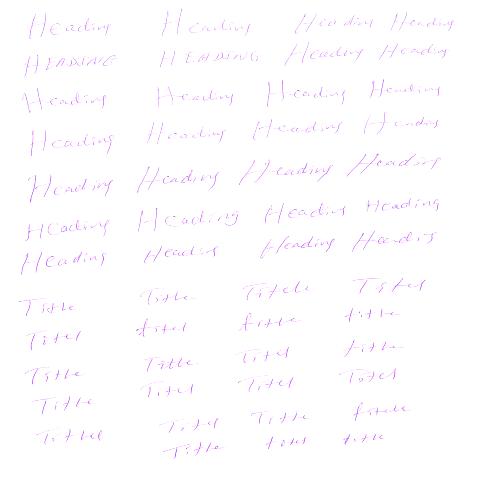 Heading Heading Heading Heading
HEADING HEADING Heading Heading
Heading Heading Heading Heading
Heading Heading Heading Heading
Heading Heading Heading Heading
Heading Heading Heading Heading
Heading Heading Heading Heading
Title Title Title
Titel titel title title
Title Title Titel title
Title Titel Titel Titel
Tittel Titel Title
Title title